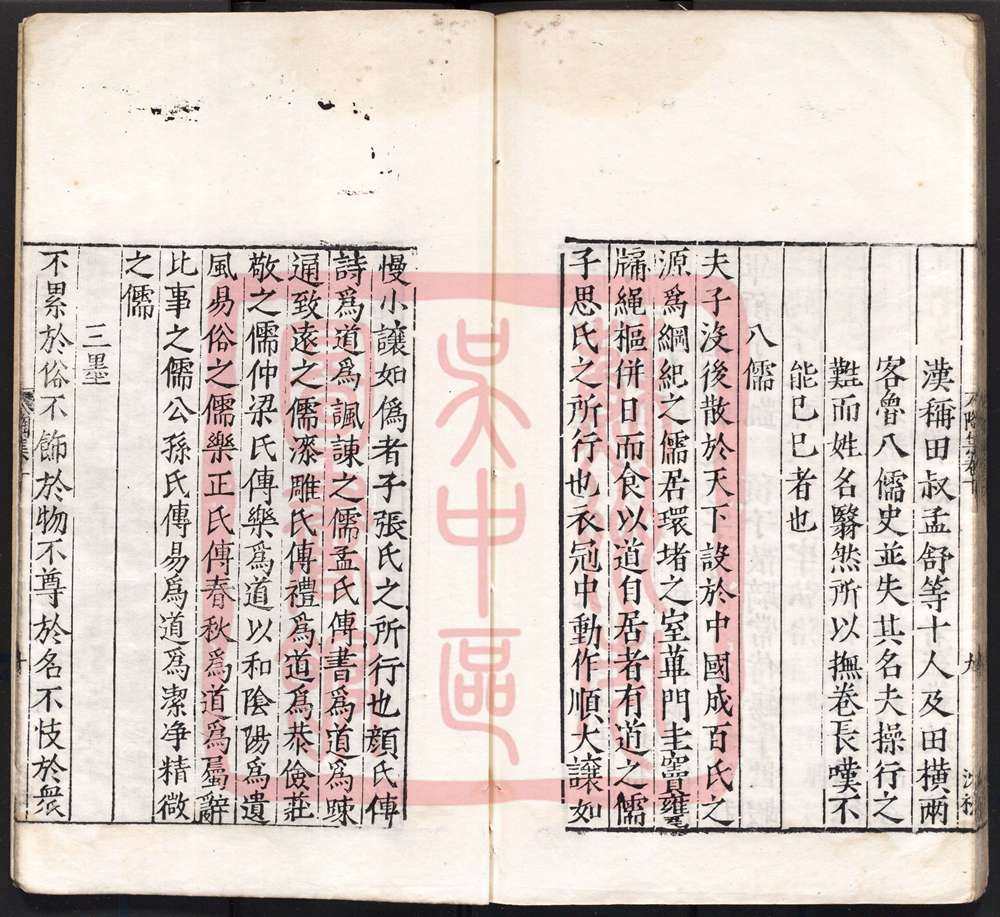 漢稱田叔孟舒等十人及田橫兩
客魯八儒史並失其名夫操行之
難而姓名翳然所以撫卷長嘆不
能已已者也
八儒
夫子沒後散於天下設於中國成百氏之
源爲綱紀之儒居環堵之室蓽門圭竇甕
牖繩樞併日而食以道自居者有道之儒
子思氏之所行也衣冠中動作順大讓如
慢小讓如僞者子張氏之所行也顔氏傳
詩爲道爲諷諫之儒孟氏傳書爲道爲疎
通致遠之儒漆雕氏傳禮爲道爲恭儉莊
敬之儒仲梁氏傳樂爲道以和陰陽爲遺
風易俗之儒樂正氏傳春秋爲道爲屬辭
比事之儒公孫氏傳易爲道爲潔净精微
之儒
三墨
不累於俗不飾於物不尊於名不忮於衆
吴中區
圖書館